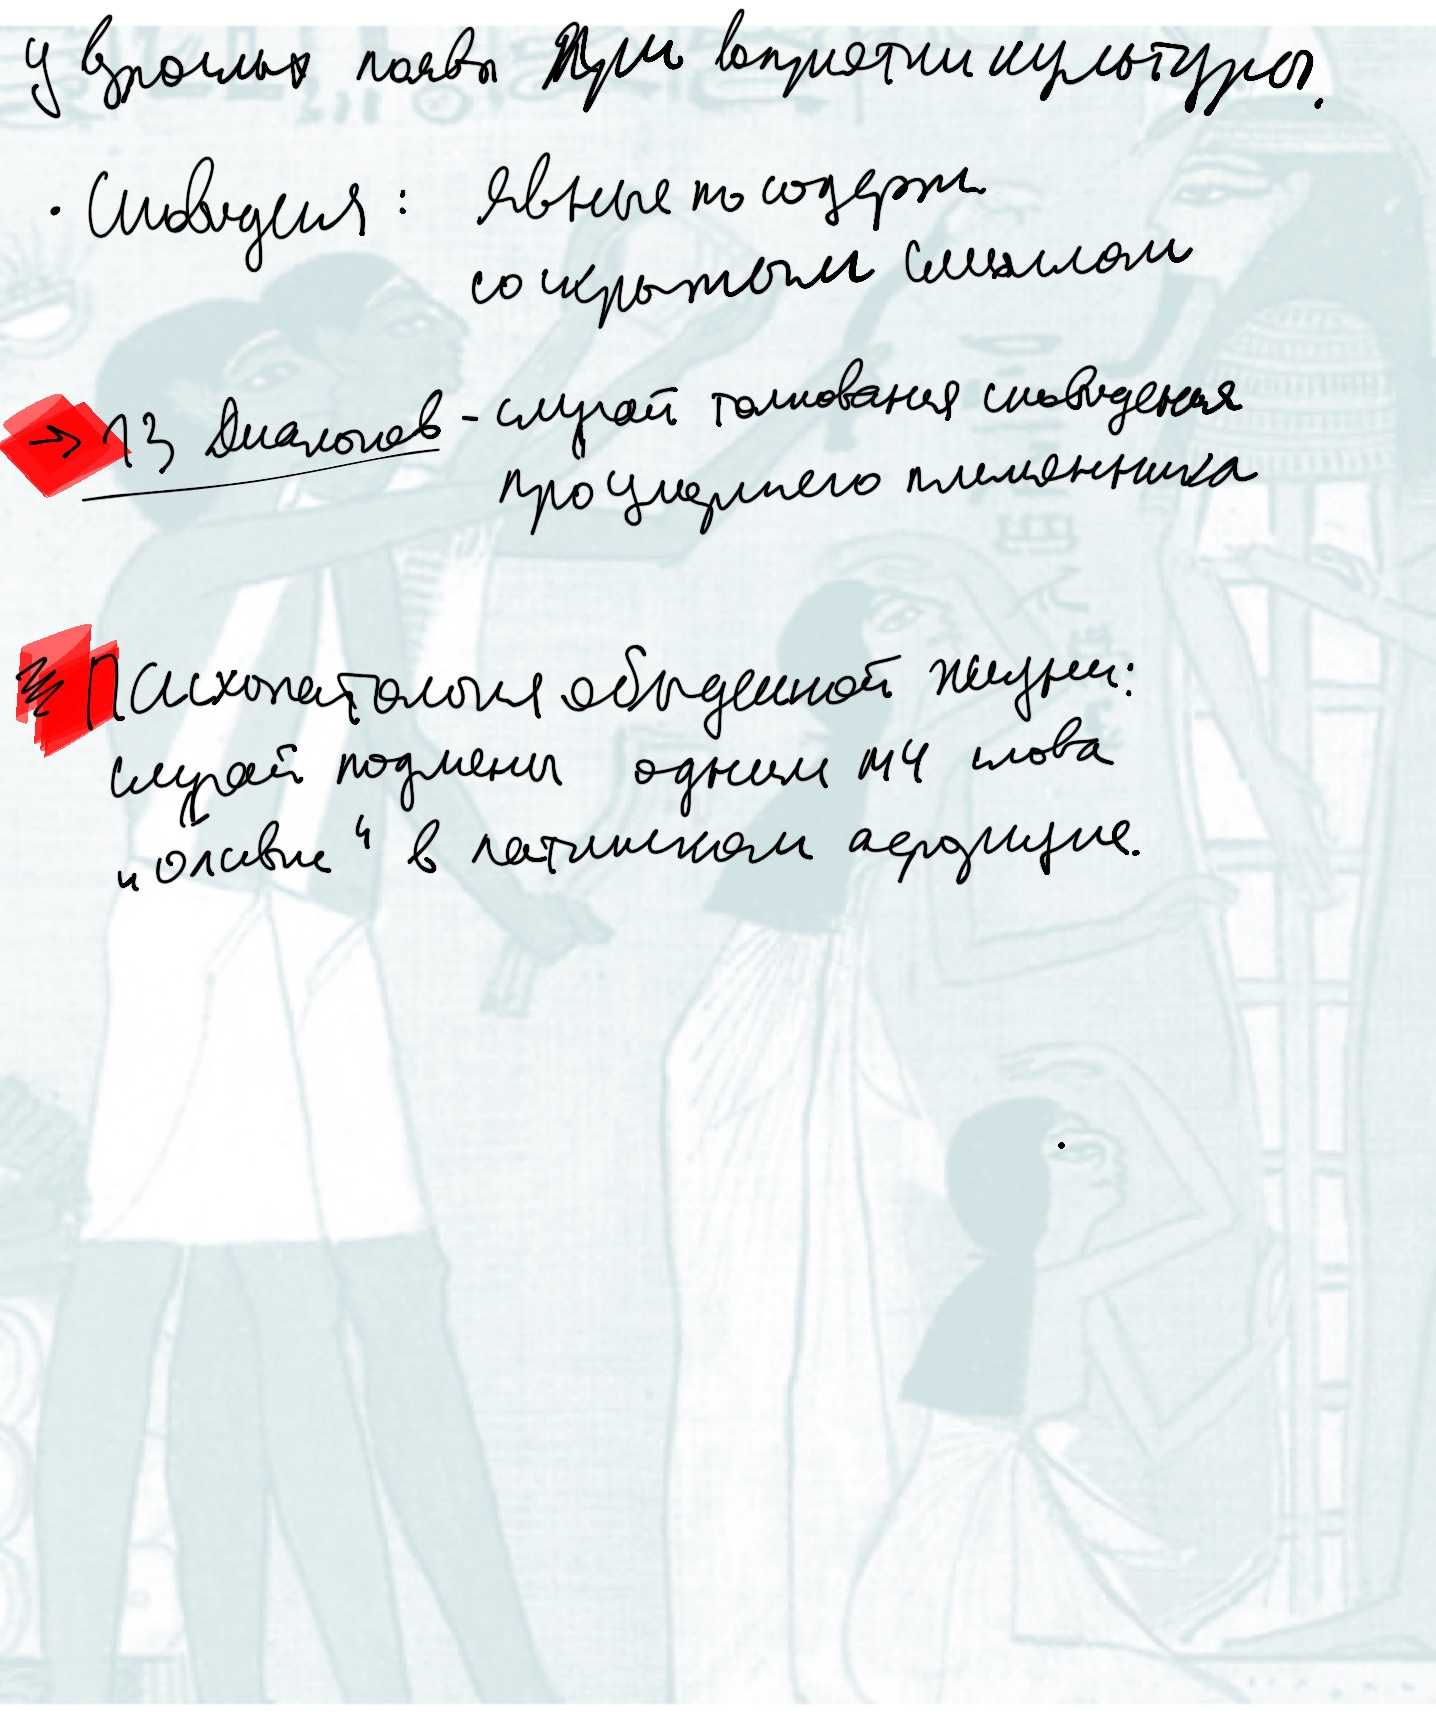 У взрослых появы при восприятии культуры.
· Сновидения: явные по содерж
со скрытым смыслом
→ 13 Диалогов - случай толкования сновидения
про умершего племянника
Психопатология обыденной жизни:
случай подмены одним мч слова
„оливие“ в латинском